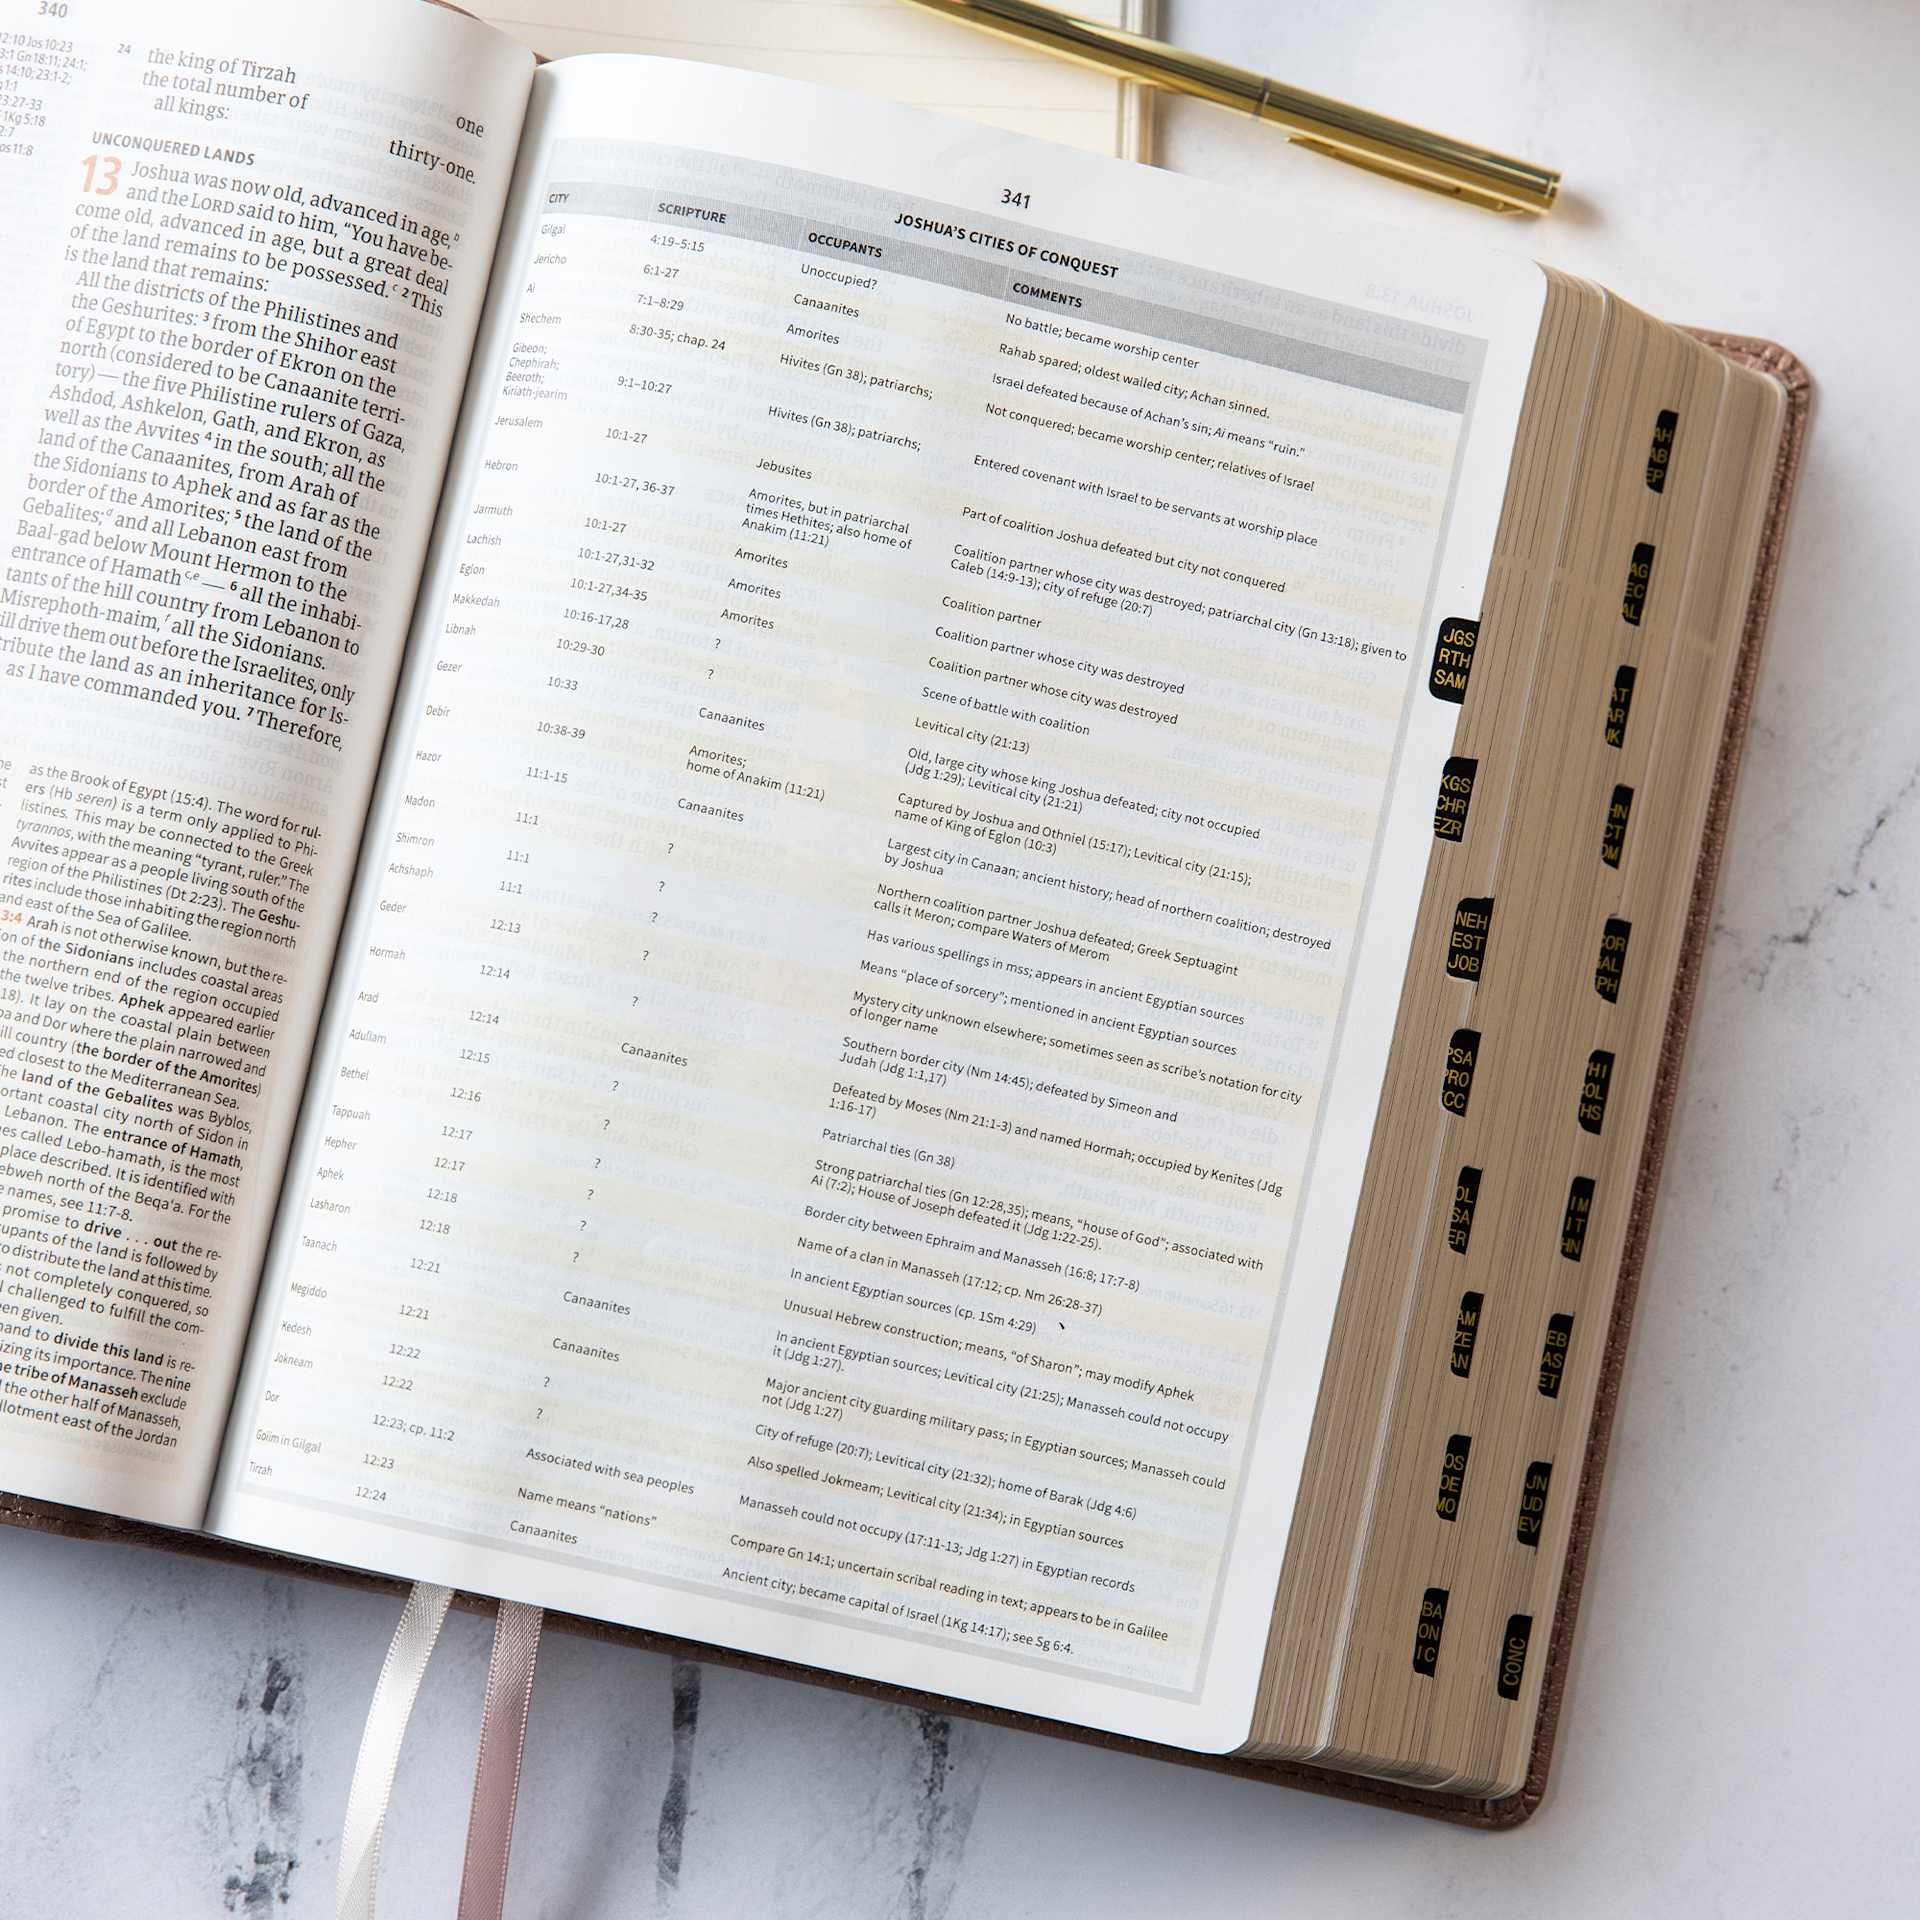 340
12:10 Jos 10:23
3:1 Gn 18:11; 24:1;
14:10; 23:1-2;
1:1
23:27-33
1Kg 5:18
2:7
Jos 11:8
24 the king of Tirzah one
the total number of
all kings: thirty-one.
UNCONQUERED LANDS
13 Joshua was now old, advanced in age,ᵇ
and the LORD said to him, “You have be-
come old, advanced in age, but a great deal
of the land remains to be possessed.ᶜ 2 This
is the land that remains:
All the districts of the Philistines and
the Geshurites: 3 from the Shihor east
of Egypt to the border of Ekron on the
north (considered to be Canaanite terri-
tory) — the five Philistine rulers of Gaza,
Ashdod, Ashkelon, Gath, and Ekron, as
well as the Avvites 4 in the south; all the
land of the Canaanites, from Arah of
the Sidonians to Aphek and as far as the
border of the Amorites; 5 the land of the
Gebalites;ᵈ and all Lebanon east from
Baal-gad below Mount Hermon to the
entrance of Hamathᶜ,ᵉ — 6 all the inhabi-
tants of the hill country from Lebanon to
Misrephoth-maim,ᶠ all the Sidonians.
ill drive them out before the Israelites, only
tribute the land as an inheritance for Is-
as I have commanded you. 7 Therefore,
as the Brook of Egypt (15:4). The word for rul-
ers (Hb seren) is a term only applied to Phi-
listines. This may be connected to the Greek
tyrannos, with the meaning “tyrant, ruler.” The
Avvites appear as a people living south of the
region of the Philistines (Dt 2:23). The Geshu-
rites include those inhabiting the region north
and east of the Sea of Galilee.
3:4 Arah is not otherwise known, but the re-
ion of the Sidonians includes coastal areas
the northern end of the region occupied
the twelve tribes. Aphek appeared earlier
18). It lay on the coastal plain between
pa and Dor where the plain narrowed and
ill country (the border of the Amorites)
ed closest to the Mediterranean Sea.
The land of the Gebalites was Byblos,
ortant coastal city north of Sidon in
Lebanon. The entrance of Hamath,
es called Lebo-hamath, is the most
place described. It is identified with
ebweh north of the Beqa‘a. For the
names, see 11:7-8.
promise to drive . . . out the re-
upants of the land is followed by
to distribute the land at this time.
not completely conquered, so
challenged to fulfill the com-
en given.
mand to divide this land is re-
izing its importance. The nine
he tribe of Manasseh exclude
the other half of Manasseh,
llotment east of the Jordan
341
JOSHUA’S CITIES OF CONQUEST
CITY SCRIPTURE OCCUPANTS COMMENTS
Gilgal 4:19–5:15 Unoccupied? No battle; became worship center
Jericho 6:1-27 Canaanites Rahab spared; oldest walled city; Achan sinned.
Ai 7:1–8:29 Amorites Israel defeated because of Achan’s sin; Ai means “ruin.”
Shechem 8:30-35; chap. 24 Hivites (Gn 38); patriarchs; Not conquered; became worship center; relatives of Israel
Gibeon;
Chephirah;
Beeroth;
Kiriath-jearim 9:1–10:27 Hivites (Gn 38); patriarchs; Entered covenant with Israel to be servants at worship place
Jerusalem 10:1-27 Jebusites Part of coalition Joshua defeated but city not conquered
Hebron 10:1-27, 36-37 Amorites, but in patriarchal
times Hethites; also home of
Anakim (11:21) Coalition partner whose city was destroyed; patriarchal city (Gn 13:18); given to
Caleb (14:9-13); city of refuge (20:7)
Jarmuth 10:1-27 Amorites Coalition partner
Lachish 10:1-27,31-32 Amorites Coalition partner whose city was destroyed
Eglon 10:1-27,34-35 Amorites Coalition partner whose city was destroyed
Makkedah 10:16-17,28 ? Scene of battle with coalition
Libnah 10:29-30 ? Levitical city (21:13)
Gezer 10:33 Canaanites Old, large city whose king Joshua defeated; city not occupied
(Jdg 1:29); Levitical city (21:21)
Debir 10:38-39 Amorites;
home of Anakim (11:21) Captured by Joshua and Othniel (15:17); Levitical city (21:15);
name of King of Eglon (10:3)
Hazor 11:1-15 Canaanites Largest city in Canaan; ancient history; head of northern coalition; destroyed
by Joshua
Madon 11:1 ? Northern coalition partner Joshua defeated; Greek Septuagint
calls it Meron; compare Waters of Merom
Shimron 11:1 ? Has various spellings in mss; appears in ancient Egyptian sources
Achshaph 11:1 ? Means “place of sorcery”; mentioned in ancient Egyptian sources
Geder 12:13 ? Mystery city unknown elsewhere; sometimes seen as scribe’s notation for city
of longer name
Hormah 12:14 ? Southern border city (Nm 14:45); defeated by Simeon and
Judah (Jdg 1:1,17)
Arad 12:14 Canaanites Defeated by Moses (Nm 21:1-3) and named Hormah; occupied by Kenites (Jdg
1:16-17)
Adullam 12:15 ? Patriarchal ties (Gn 38)
Bethel 12:16 ? Strong patriarchal ties (Gn 12:28,35); means, “house of God”; associated with
Ai (7:2); House of Joseph defeated it (Jdg 1:22-25).
Tappuah 12:17 ? Border city between Ephraim and Manasseh (16:8; 17:7-8)
Hepher 12:17 ? Name of a clan in Manasseh (17:12; cp. Nm 26:28-37)
Aphek 12:18 ? In ancient Egyptian sources (cp. 1Sm 4:29)
Lasharon 12:18 ? Unusual Hebrew construction; means, “of Sharon”; may modify Aphek
Taanach 12:21 Canaanites In ancient Egyptian sources; Levitical city (21:25); Manasseh could not occupy
it (Jdg 1:27).
Megiddo 12:21 Canaanites Major ancient city guarding military pass; in Egyptian sources; Manasseh could
not (Jdg 1:27)
Kedesh 12:22 ? City of refuge (20:7); Levitical city (21:32); home of Barak (Jdg 4:6)
Jokneam 12:22 ? Also spelled Jokmeam; Levitical city (21:34); in Egyptian sources
Dor 12:23; cp. 11:2 Associated with sea peoples Manasseh could not occupy (17:11-13; Jdg 1:27) in Egyptian records
Goiim in Gilgal 12:23 Name means “nations” Compare Gn 14:1; uncertain scribal reading in text; appears to be in Galilee
Tirzah 12:24 Canaanites Ancient city; became capital of Israel (1Kg 14:17); see Sg 6:4.
JGS
RTH
SAM
KGS
CHR
EZR
NEH
EST
JOB
PSA
PRO
CC
OL
SA
ER
AM
ZE
AN
OS
OE
MO
BA
ON
IC
AH
AB
EP
AG
EC
AL
AT
AR
UK
HN
CT
OM
COR
GAL
PH
PHI
COL
HS
IM
IT
HN
EB
AS
ET
JN
UD
EV
CONC